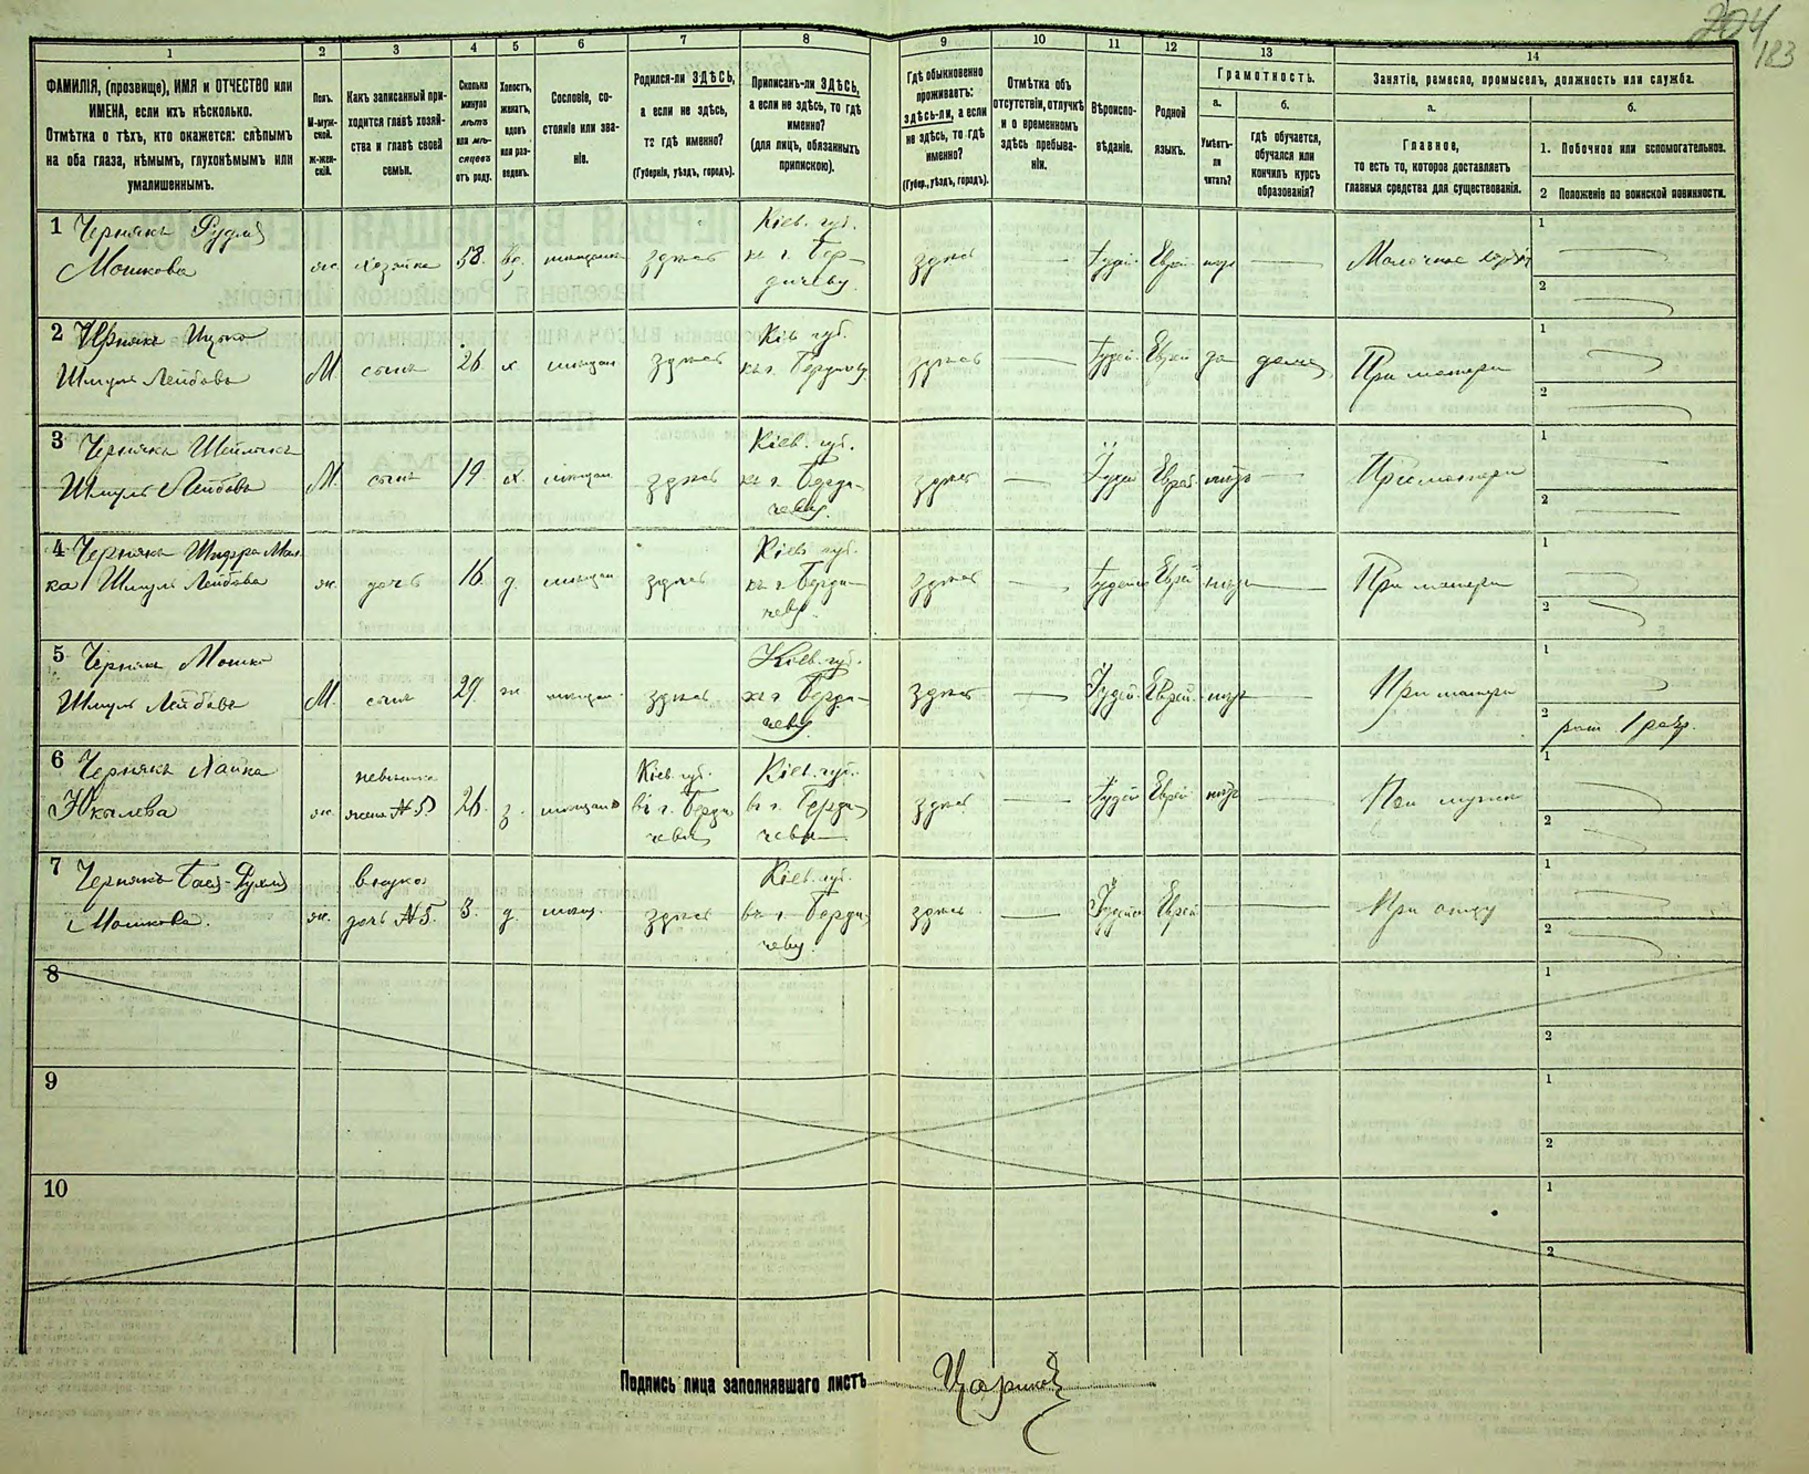 204
183
1
2
3
4
5
6
7
8
9
10
11
12
13
14
ФАМИЛІЯ, (прозвище), ИМЯ и ОТЧЕСТВО или
ИМЕНА, если ихъ нѣсколько.
Отмѣтка о тѣхъ, кто окажется: слѣпымъ
на оба глаза, нѣмымъ, глухонѣмымъ или
умалишеннымъ.
Полъ.
М-муж-
ской.
ж-жен-
скій.
Какъ записанный при-
ходится главѣ хозяй-
ства и главѣ своей
семьи.
Сколько
минуло
лѣтъ
или мѣ-
сяцевъ
отъ роду.
Холостъ,
женатъ,
вдовъ
или раз-
веденъ.
Сословіе, со-
стояніе или зва-
ніе.
Родился-ли ЗДѢСЬ,
а если не здѣсь,
то гдѣ именно?
(Губернія, уѣздъ, городъ).
Приписанъ-ли ЗДѢСЬ,
а если не здѣсь, то гдѣ
именно?
(для лицъ, обязанныхъ
припискою).
Гдѣ обыкновенно
проживаетъ:
ЗДѢСЬ-ли, а если
не здѣсь, то гдѣ
именно?
(Губер., уѣздъ, городъ).
Отмѣтка объ
отсутствіи, отлучкѣ
и о временномъ
здѣсь пребыва-
ніи.
Вѣроиспо-
вѣданіе.
Родной
языкъ.
Грамотность.
а.
Умѣетъ-
ли
читать?
б.
гдѣ обучается,
обучался или
кончилъ курсъ
образованія?
Занятіе, ремесло, промыселъ, должность или служба.
а.
Главное,
то есть то, которое доставляетъ
главныя средства для существованія.
б.
1. Побочное или вспомогательное.
2 Положеніе по воинской повинности.
1 Чернякъ Рухля
Мошкова
ж. хозяйка 58. вд. мещанка здѣсь
Кіев. губ.
къ г. Бер-
дичеву.
здѣсь — Іудей. Еврей нѣтъ — Молочная
1
2
2 Чернякъ Ицко
Шмуль Лейбовъ
М. сынъ 26. х. мещан. здѣсь
Кіев губ.
къ г. Бердичеву
здѣсь — Іудей. Еврей да дома При матери
1
2
3 Чернякъ
Шмуль Лейбовъ
М. сынъ 19. х. мещан. здѣсь
Кіев. губ.
къ г. Берди-
чеву.
здѣсь — Іудей Еврей. нѣтъ — При матери
1
2
4 Чернякъ Шифра Мал-
ка Шмуль Лейбова
ж. дочь 16. д. мещан. здѣсь
Кіев губ.
къ г. Берди-
чеву.
здѣсь — Іудей Еврей нѣтъ — При матери
1
2
5 Чернякъ Мошко
Шмуль Лейбовъ
М. сынъ 29. ж. мещан. здѣсь
Кіев. губ.
къ г. Берди-
чеву.
здѣсь — Іудей. Еврей. нѣтъ — При матери
1
2 рат. 1 разр.
6 Чернякъ
ж. невѣстка
жена №5. 26. з. мещан.
Кіев. губ.
въ г. Берди-
чевѣ
Кіев. губ.
въ г. Берди-
чевѣ
здѣсь — Іудей Еврей нѣтъ — При мужѣ
1
2
7 Чернякъ Бася-Рухля
Мошкова.
ж. внука
дочь №5. 3. д. мещ. здѣсь
Кіев. губ.
въ г. Берди-
чеву.
здѣсь — Іудей Еврей — При отцу
1
2
8
1
2
9
1
2
10
1
2
Подпись лица заполнявшаго листъ